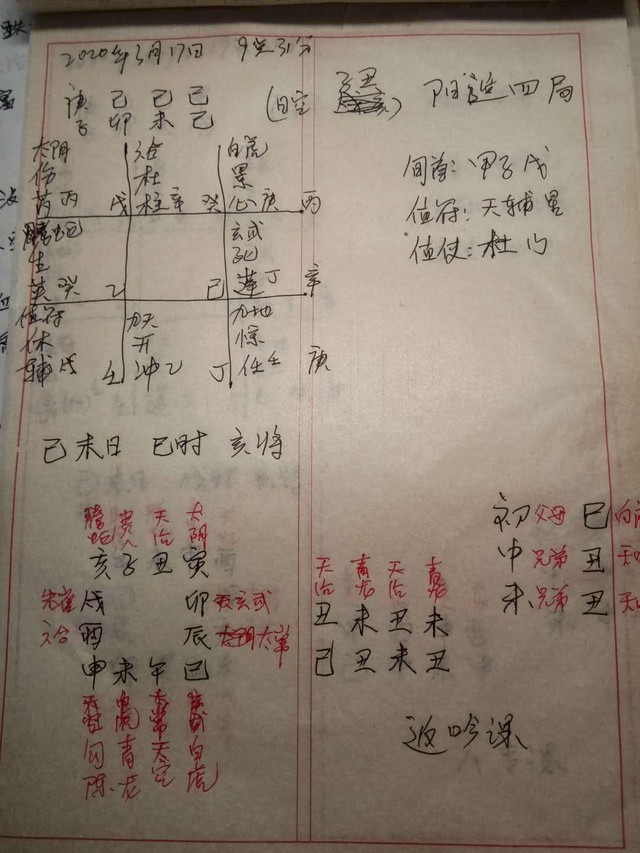 2020年3月17日 9点31分
庚 己 己 己
子 卯 未 巳
(日空 子丑)
阳遁四局
旬首: 甲子戊
值符: 天辅星
值使: 杜门
太阴 六合 白虎
伤 杜 景
芮丙 戊 柱辛 癸 心庚 丙
螣蛇 玄武
生 死
英癸 乙 己 蓬丁 辛
值符 九天 九地
休 开 惊
辅戊 壬 冲乙 丁 任壬 庚
己未日 巳时 亥将
螣蛇 贵人 天后 太阴
亥 子 丑 寅
朱雀 戌 卯 玄武
六合 酉 辰 太常
申 未 午 巳
勾陈 青龙 天空 白虎
天后 青龙 天后 青龙
丑 未 丑 未
己 丑 未 丑
初 父母 巳 白
中 兄弟 丑 天
末 兄弟 丑 天
返吟课